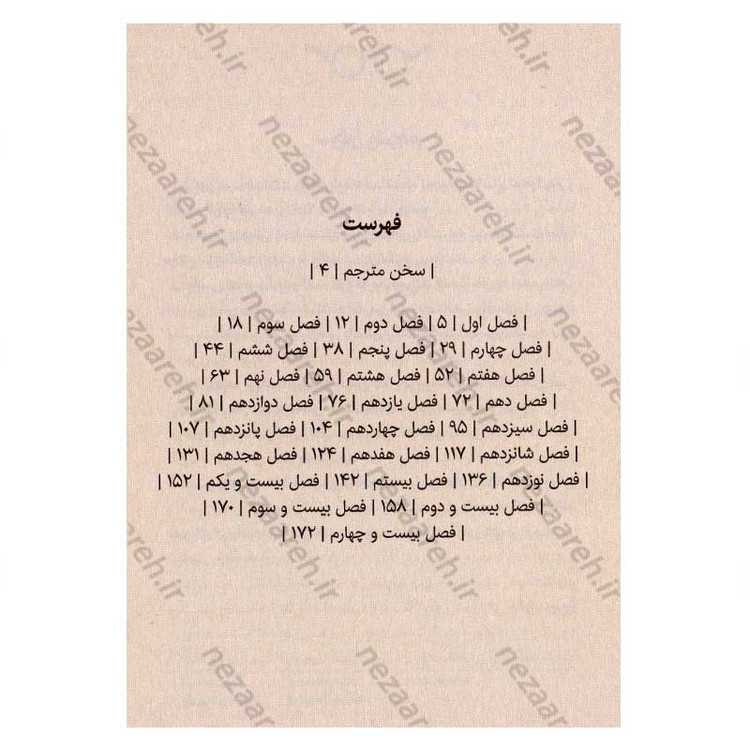 فهرست
| سخن مترجم | ۴ |
| فصل اول | ۵ | فصل دوم | ۱۲ | فصل سوم | ۱۸ |
| فصل چهارم | ۲۹ | فصل پنجم | ۳۸ | فصل ششم | ۴۴ |
| فصل هفتم | ۵۲ | فصل هشتم | ۵۹ | فصل نهم | ۶۳ |
| فصل دهم | ۷۲ | فصل یازدهم | ۷۶ | فصل دوازدهم | ۸۱ |
| فصل سیزدهم | ۹۵ | فصل چهاردهم | ۱۰۴ | فصل پانزدهم | ۱۰۷ |
| فصل شانزدهم | ۱۱۷ | فصل هفدهم | ۱۲۴ | فصل هجدهم | ۱۳۱ |
| فصل نوزدهم | ۱۳۶ | فصل بیستم | ۱۴۲ | فصل بیست و یکم | ۱۵۲ |
| فصل بیست و دوم | ۱۵۸ | فصل بیست و سوم | ۱۷۰ |
| فصل بیست و چهارم | ۱۷۲ |
nezaareh.ir
nezaareh.ir
nezaareh.ir
nezaareh.ir
nezaareh.ir
nezaareh.ir
nezaareh.ir
nezaareh.ir